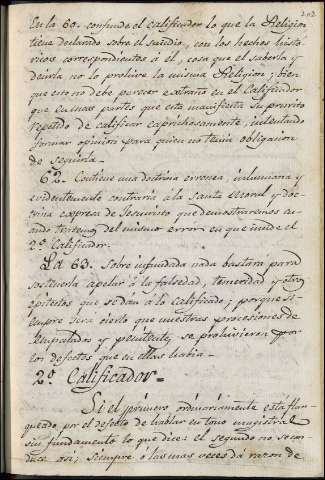 202
En la 60. confunde el calificador lo que la Religion
tiene declarado sobre el suñidio, con los hechos histo
ricos correspondientes á el, cosa que el saberla y
decirla no lo prohive la misma Religion; bien
que esto no debe parecer extraño en el Calificador
que en mas partes que esta manifiesta su prurito
repetido de calificar caprichosamente, intentando
formar opinion para quien no tenia obligacion
de seguirla.
62. Contiene una doctrina erronea, inhumana y
evidentemente contraria á la santa moral y doc-
trina expresa de Jesucristo que demostraremos cu-
ando tratemos del mismo error en que incide el
2º. Calificador.
La 63. sobre infundada nada bastará para
sostenerla apelar á la falsedad, temeridad y otros
epitetos que se dan á lo calificado; porque si-
empre será cierto que nuestras procesiones de
empalados y penitentes, se prohivieron por
los defectos que en ellas habia.
2º. Calificador=
Si el primero ordinariamente está flan-
queado por el defecto de hablar en tono magistral
sin fundamento lo que dice: el segundo no se con-
duce asi; siempre ó las mas veces dá razon de